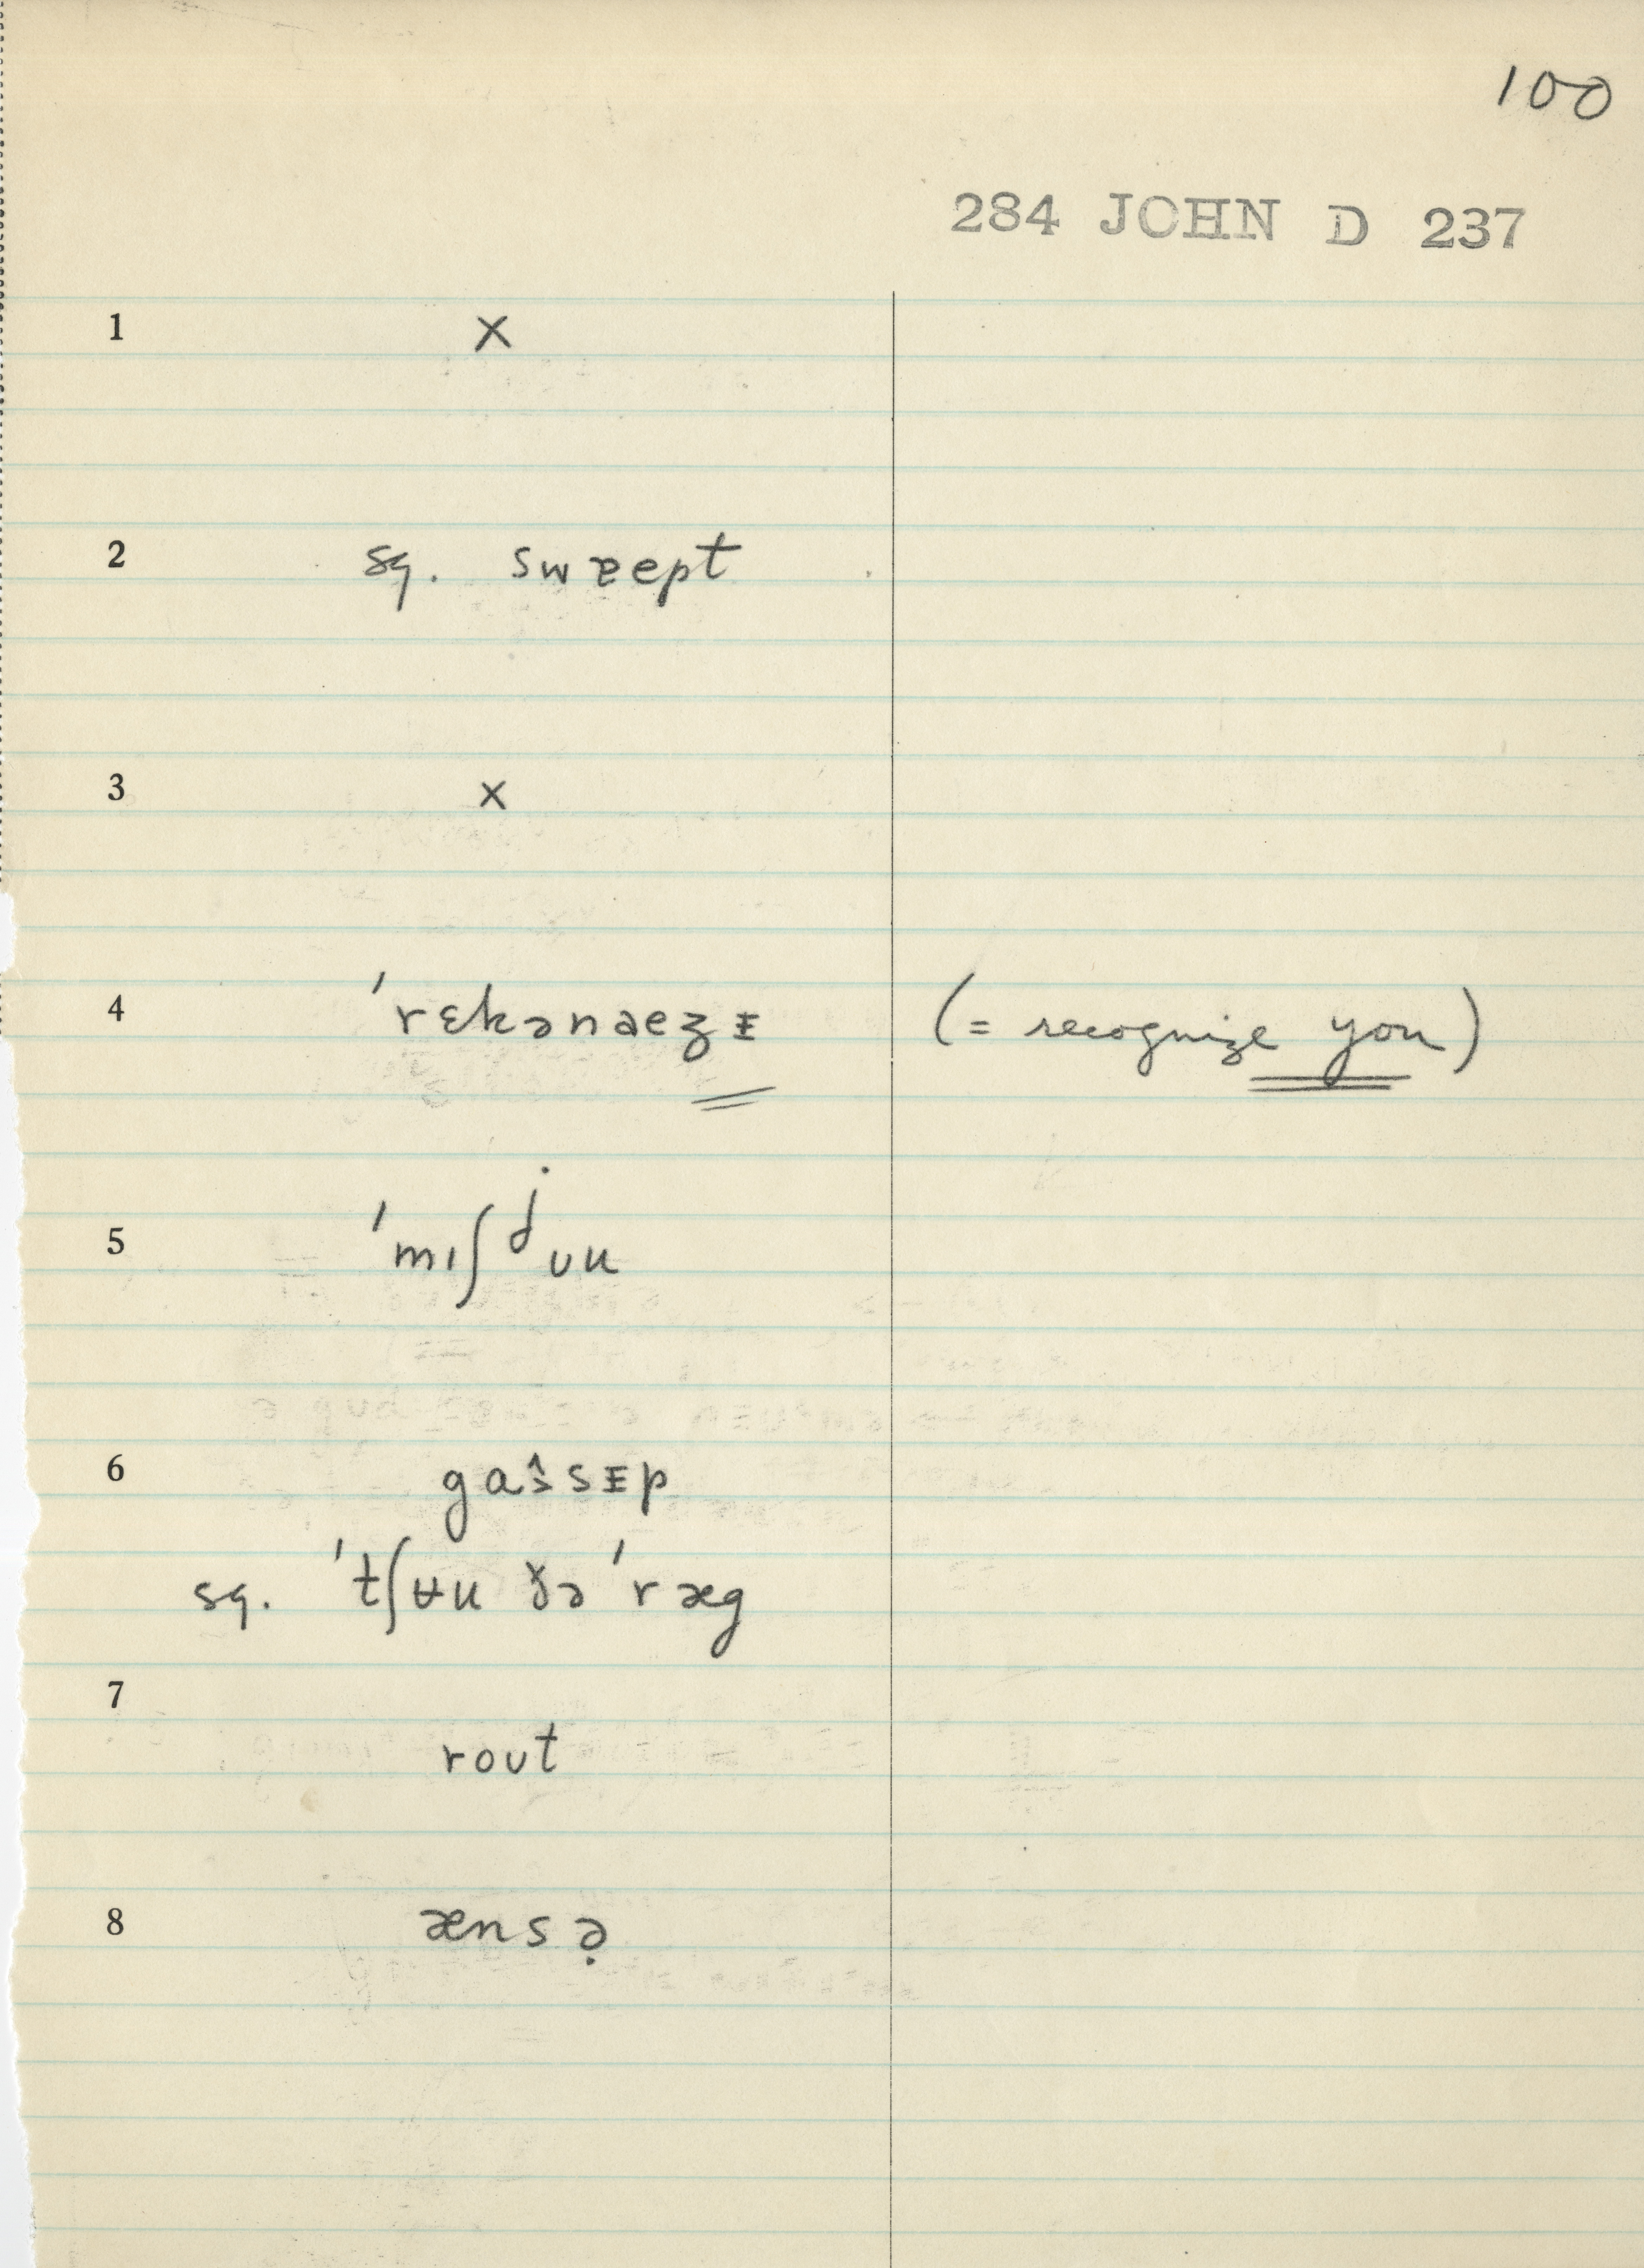 100
284 JOHN D 237
1 ×
2 sq. swɐept
3 ×
4 ˈrɛkənaezᵻ (= recognize you)
5 ˈmɪʃʲʊu
6 gas̭sᵻp
sq. ˈtʃʊ̵u ðə ˈræg
7
roʊt
8 ænsə̣